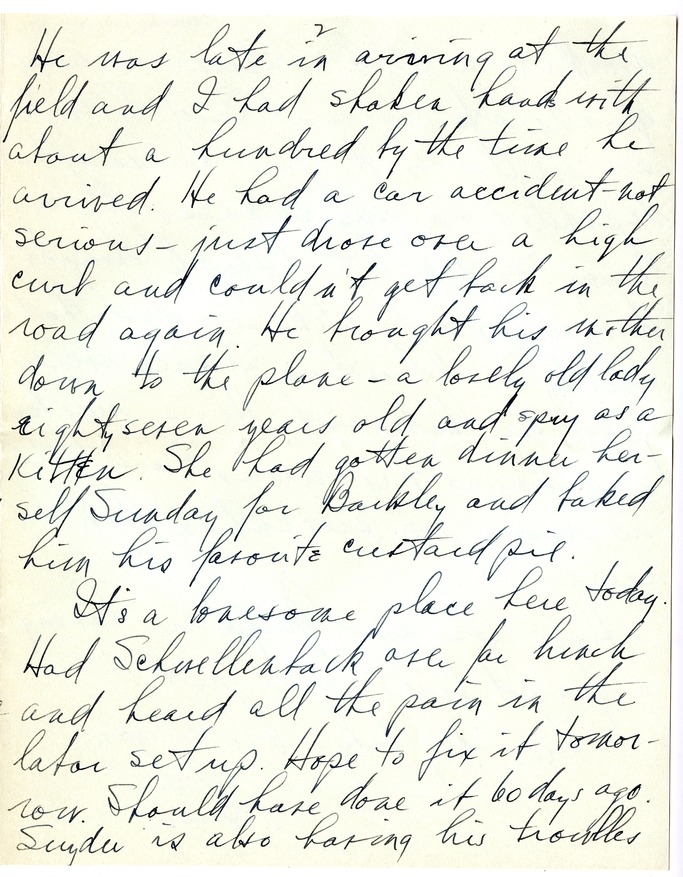 2
He was late in arriving at the
field and I had shaken hands with
about a hundred by the time he
arrived. He had a car accident - not
serious - just drove over a high
curb and couldn't get back in the
road again. He brought his mother
down to the plane - a lovely old lady
eighty seven years old and spry as a
Kitten. She had gotten dinner her-
self Sunday for Barkley and baked
him his favorite custard pie.
It's a lonesome place here today.
Had Schwellenback over for lunch
and heard all the pain in the
labor set up. Hope to fix it tomor-
row. Should have done it 60 days ago.
Snyder is also having his troubles